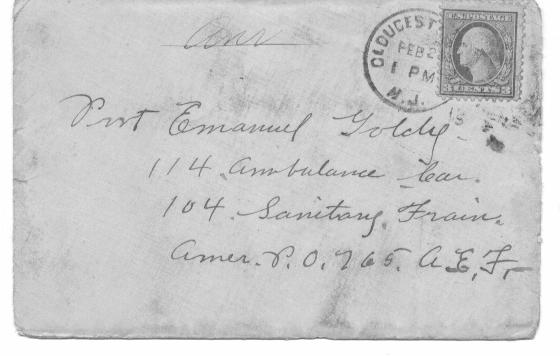 GLOUCEST
FEB 2
1 PM
N.J.
U.S. POSTAGE
CENTS
Pvt Emanuel Goldy
114 Ambulance Car.
104. Sanitary. Train.
Amer. P. O. 765. A. E. F.